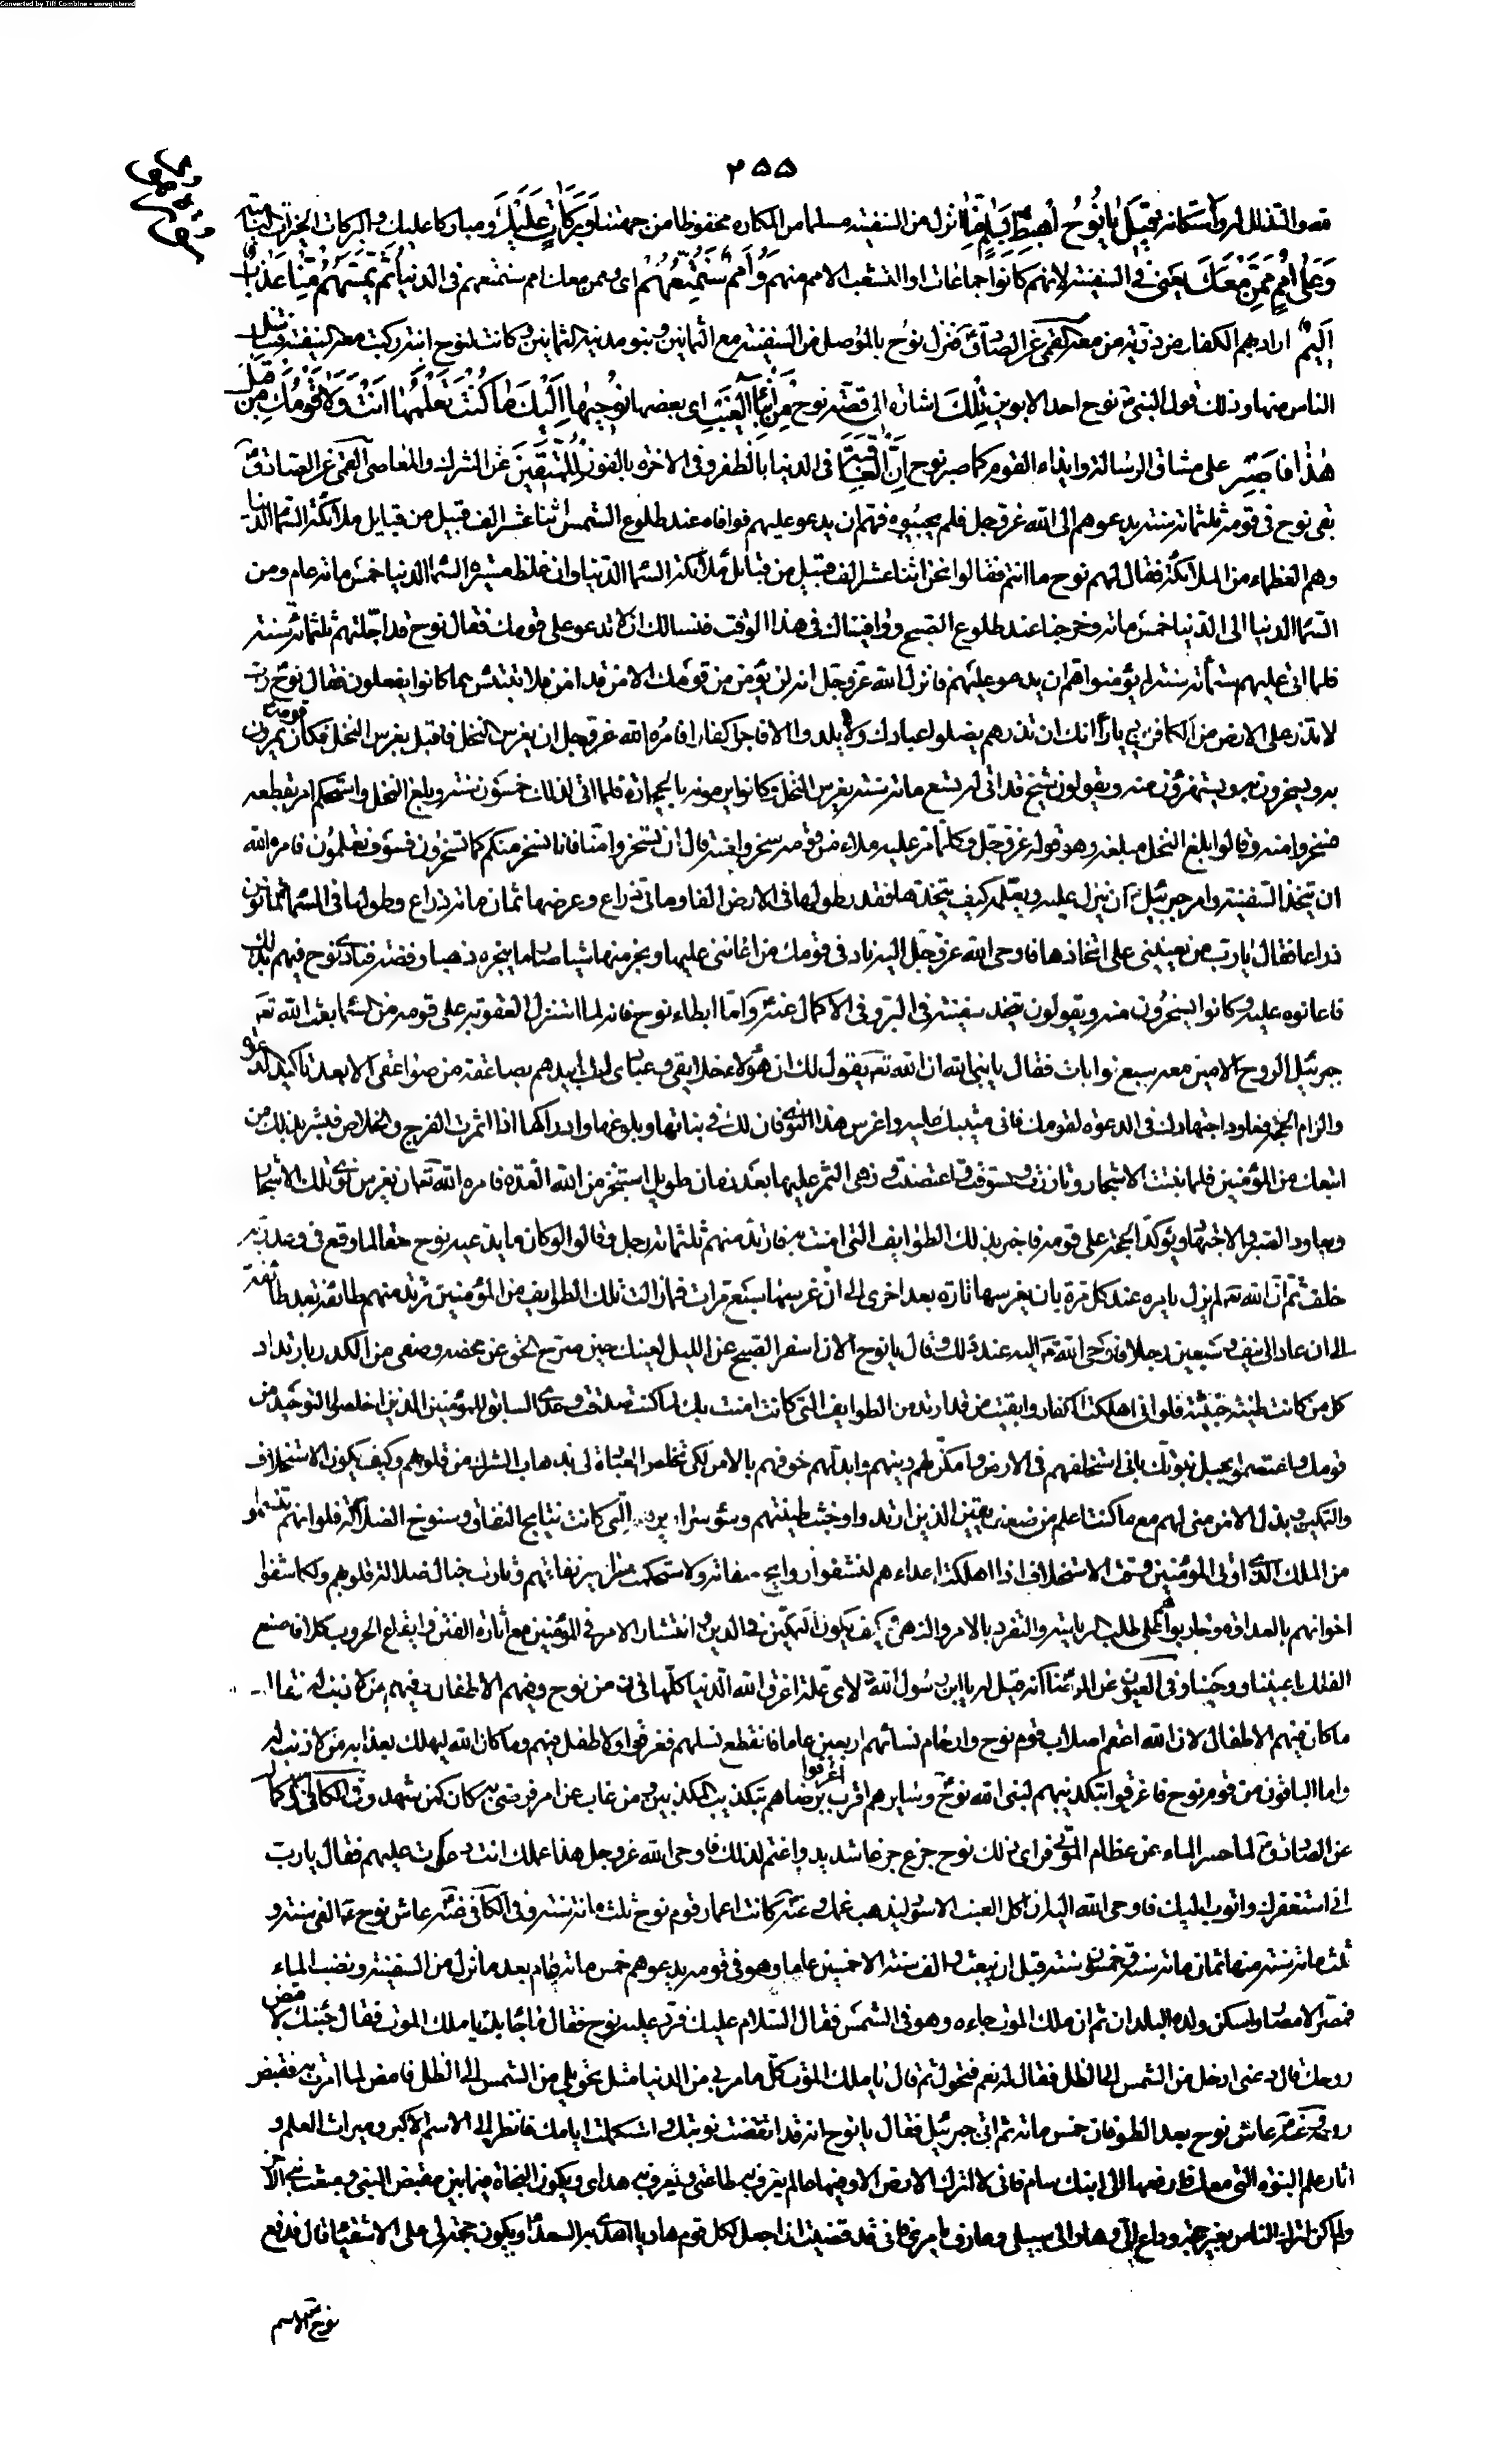 Converted by Tiff Combine - unregistered
٢٥٥
قصد التذلل له والاستكانة قِيلَ يَا نُوحُ اهْبِطْ بِسَلَامٍ مِنَّا انزل من السفينة مسلما من المكاره محفوظا من جهتنا وَبَرَكَاتٍ عَلَيْكَ ومباركا عليك والبركات الخيرات النامية
وَعَلَى أُمَمٍ مِمَّنْ مَعَكَ يعني في السفينة لانهم كانوا جماعات او لتشعب الامم منهم وَأُمَمٌ سَنُمَتِّعُهُمْ اي وممن معك امم سنمتعهم في الدنيا ثُمَّ يَمَسُّهُمْ مِنَّا عَذَابٌ
أَلِيمٌ اراد بهم الكفار من ذرية من معه القمي عن الصادق فنزل نوح بالموصل من السفينة مع الثمانين وبنوا مدينة الثمانين وكانت لنوح ابنة ركبت معه السفينة فتناسل
الناس منها وذلك قول النبي نوح احد الابوين تِلْكَ اشارة الى قصة نوح مِنْ أَنْبَاءِ الْغَيْبِ اي بعضها نُوحِيهَا إِلَيْكَ مَا كُنْتَ تَعْلَمُهَا أَنْتَ وَلَا قَوْمُكَ مِنْ قَبْلِ
هَذَا فَاصْبِرْ على مشاق الرسالة وايذاء القوم كما صبر نوح إِنَّ الْعَاقِبَةَ في الدنيا بالظفر وفي الاخرة بالفوز لِلْمُتَّقِينَ عن الشرك والمعاصي القمي عن الصادق
بقي نوح في قومه ثلثمائة سنة يدعوهم الى الله عز وجل فلم يجيبوه فهم ان يدعو عليهم فوافاه عند طلوع الشمس اثنا عشر الف قبيل من قبايل ملائكة السماء الدنيا
وهم العظماء من الملائكة فقال لهم نوح ما انتم فقالوا نحن اثنا عشر الف قبيل من قبائل ملائكة السماء الدنيا وان غلظ مسيرة السماء الدنيا خمس مائة عام ومن
السماء الدنيا الى الدنيا خمس مائة وخرجنا عند طلوع الشمس ووافيناك في هذا الوقت فنسالك ان لا تدعو على قومك فقال نوح قد اجلتهم ثلثمائة سنة
فلما اتى عليهم ستمائة سنة ولم يؤمنوا هم ان يدعو عليهم فانزل الله عز وجل انه لن يؤمن من قومك الا من قد امن فلا تبتئس بما كانوا يفعلون فقال نوح رب
لا تذر على الارض من الكافرين ديارا انك ان تذرهم يضلوا عبادك ولا يلدوا الا فاجرا كفارا فامره الله عز وجل ان يغرس النخل فاقبل يغرس النخل فكان قومه يمرون
به ويسخرون به ويستهزؤن منه ويقولون شيخ قد اتى له تسع مائة سنة يغرس النخل وكانوا يرمونه بالحجارة فلما اتى لذلك خمسون سنة وبلغ النخل واستحكم امر بقطعه
فسخروا منه وقالوا بلغ النخل مبلغه وهو قوله عز وجل وكلما مر عليه ملاء من قومه سخروا منه قال ان تسخروا منا فانا نسخر منكم كما تسخرون فسوف تعلمون فامره الله
ان يتخذ السفينة وامر جبرئيل ان ينزل عليه ويعلمه كيف يتخذها فقدر طولها في الارض الفا ومائتي ذراع وعرضها ثمان مائة ذراع وطولها في السماء ثمانون
ذراعا فقال يا رب من يعينني على اتخاذها فاوحى الله عز وجل اليه ناد في قومك من اعانني عليها ونجر منها شيئا صار ما ينجره ذهبا وفضة فنادى نوح فيهم بذلك
فاعانوه عليه وكانوا يسخرون منه ويقولون يتخذ سفينة في البر وفي الاكمال عنه واما ابطاء نوح فانه لما استنزل العقوبة على قومه من السماء بعث الله تع
جبرئيل الروح الامين معه سبع نوايات فقال يا نبي الله ان الله تع يقول لك ان هؤلاء خلايقي وعبادي لست ابيدهم بصاعقة من صواعقي الا بعد تاكيد الدعوة
والزام الحجة فعاود اجتهادك في الدعوة لقومك فاني مثيبك عليه واغرس هذا النوى فان لك في نباتها وبلوغها وادراكها اذا اثمرت الفرج والخلاص فبشر بذلك من
اتبعك من المؤمنين فلما نبتت الاشجار وتازرت وتسوقت واغتصنت وزهى الثمر عليها بعد زمان طويل استنجز من الله العدة فامره الله تعالى ان يغرس من نوى تلك الاشجار
ويعاود الصبر والاجتهاد ويؤكد الحجة على قومه فاخبر بذلك الطوايف التي امنت به فارتد منهم ثلثمائة رجل وقالوا لو كان ما يدعيه نوح حقا لما وقع في وعد ربه
خلف ثم ان الله تع لم يزل يامره عند كل مرة بان يغرسها تارة بعد اخرى الى ان غرسها سبع مرات فما زالت تلك الطوايف من المؤمنين ترتد منهم طائفة بعد طائفة
الى ان عاد الى نيف وسبعين رجلا فاوحى الله تع اليه عند ذلك وقال يا نوح الان اسفر الصبح عن الليل لعينك حين صرح الحق عن محضه وصفى من الكدر بارتداد
كل من كانت طينته خبيثة فلو اني اهلكت الكفار وابقيت من قد ارتد من الطوايف التي كانت امنت بك لما كنت صدقت وعدي السابق للمؤمنين الذين اخلصوا التوحيد من
قومك واعتصموا بحبل نبوتك باني استخلفهم في الارض وامكن لهم دينهم وابدلهم خوفهم بالامن لكي تخلص العبادة لي بذهاب الشرك من قلوبهم وكيف يكون الاستخلاف
والتمكين وبذل الامن مني لهم مع ما كنت اعلم من ضعف يقين الذين ارتدوا وخبث طينتهم وسوء سرايرهم التي كانت نتايج النفاق وسنوخ الضلالة فلو انهم تنسموا
من الملك الذي اوتي المؤمنين وقت الاستخلاف اذا اهلكت اعداءهم لنشقوا روايح صفاته ولاستحكمت سراير نفاقهم وثارت خبال ضلالة قلوبهم ولكاشفوا
اخوانهم بالعداوة وحاربوهم على طلب الرياسة والتفرد بالامر والنهي وكيف يكون التمكين في الدين وانتشار الامر في المؤمنين مع اثارة الفتن وايقاع الحروب كلا فاصنع
الفلك باعيننا ووحينا وفي العيون عن الرضا انه قيل له يا ابن رسول الله لاي علة اغرق الله الدنيا كلها في زمن نوح وفيهم الاطفال وفيهم من لا ذنب له فقال
ما كان فيهم الاطفال لان الله اعقم اصلاب قوم نوح وارحام نسائهم اربعين عاما فانقطع نسلهم فغرقوا ولا طفل فيهم وما كان الله ليهلك بعذابه من لا ذنب له
واما الباقون من قوم نوح فاغرقوا لتكذيبهم لنبي الله نوح وسايرهم اغرقوا برضاهم بتكذيب المكذبين ومن غاب عن امر فرضي به كان كمن شهده وفي الكافي
عن الصادق لما حسر الماء عن عظام الموتى فراى ذلك نوح جزع جزعا شديدا واغتم لذلك فاوحى الله عز وجل هذا عملك انت دعوت عليهم فقال يا رب
اني استغفرك واتوب اليك فاوحى الله اليه ان كل العنب الاسود ليذهب غمك وعنه كانت اعمار قوم نوح ثلث مائة سنة وفي الكافي عنه عاش نوح الفي سنة و
ثلث مائة سنة منها ثمان مائة سنة وخمسون سنة قبل ان يبعث والف سنة الا خمسين عاما وهو في قومه يدعوهم وخمس مائة عام بعد ما نزل من السفينة ونضب الماء
فمصر الامصار واسكن ولده البلدان ثم ان ملك الموت جاءه وهو في الشمس فقال السلام عليك فرد عليه نوح فقال ما جاء بك يا ملك الموت فقال جئتك لاقبض
روحك قال دعني ادخل من الشمس الى الظل فقال له نعم فتحول ثم قال يا ملك الموت كل ما مر بي من الدنيا مثل تحويلي من الشمس الى الظل فامض لما امرت به فقبض
روحه وعنه عاش نوح بعد الطوفان خمس مائة ثم اتى جبرئيل فقال يا نوح انه قد انقضت نوبتك واستكملت ايامك فانظر الى الاسم الاكبر وميراث العلم و
اثار علم النبوة التي معك فادفعها الى ابنك سام فاني لا اترك الارض الا وفيها عالم يعرف به طاعتي ويعرف به هداي ويكون النجاة فيما بين مقبض النبي ومبعث النبي الاخر
ولم اكن اترك الناس بغير حجة وداع الي وهاد الى سبيلي وعارف بامري فاني قد قضيت ان اجعل لكل قوم هاديا اهدي به السعداء ويكون حجة لي على الاشقياء قال فدفع
نوح الاسم